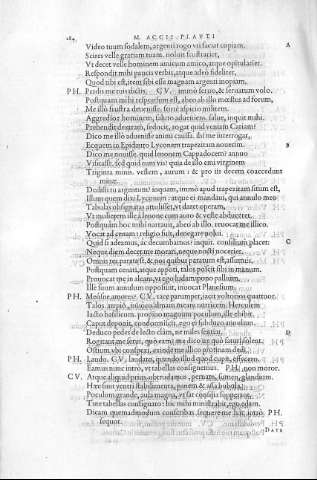 184 M. ACCII PLAVTI
Video tuum sodalem, argenti rogo vti faciat copiam. A
Scires velle gratiam tuam. noluit frustrarier,
Vt decet velle hominem amicum amico, atque opitularier.
Respondit mihi paucis verbis, atque adeò fideliter,
Quod tibi est, item sibi esse magnam argenti inopiam.
PH. Perdis me tuis dictis. CV. immò seruo, & seruatum volo.
Postquam mihi responsum est, abeo ab illo mœstus ad forum,
Me illo frustra aduenisse. fortè aspicio militem.
Aggredior hominem, saluto adueniens. salue, inquit mihi.
Prehendit dextram, seducit, rogat quid veniam Cariam?
Dico me illo aduenisse animi caussa. ibi me interrogat,
Ecquem in Epidauro Lyconem trapezitam nouerim. B
Dico me nouisse. quid lenonem Cappadocem? annuo
Visitasse. sed quid eum vis? quia de illo emi virginem
Triginta minis. vestem, aurum: & pro iis decem coaccedunt
minæ.
Dedisti tu argentum? inquam. immò apud trapezitam situm est,
Illum quem dixi Lyconem: atque ei mandaui, qui annulo meo
Tabulas obsignatas attulisset, vt daret operam,
Vt mulierem ille à lenone cum auro & veste abduceret.
Postquam hoc mihi narrauit, abeo ab illo. reuocat me illico.
Vocat ad cœnam: religio fuit, denegare nolui.
Quid si adeamus, ac decumbamus? inquit. consilium placet: C
Neque diem decet me morari, neque nocti nocerier.
Omnis res parata est, & nos quibus paratum est, assumus.
Postquam cœnati, atque appoti, talos poscit sibi in manum.
Prouocat me in aleam, vt ego ludam. pono pallium,
Ille suum annulum opposiuit, inuocat Planesium.
PH. Meósne amores? CV. tace parumper. iacit volturios quattuor.
Talos arripio, inuoco almam meam nutricem Herculem
Iacto basilicum. propino magnum poculum, ille ebibit.
Caput deponit, condormiscit. ego ei subduco annulum.
Deduco pedes de lecto clàm, ne miles sentiat. D
Rogitant me serui, quò eam. me dico ire quò saturi solent.
Ostium vbi conspexi, exinde me illico protinus dedi.
PH. Laudo. CV. laudato, quando illud quod cupis, effecero.
Eamus nunc intrò, vt tabellas consignemus. PH. non moror.
CV. Atque aliquid prius obstrudamus, pernam, sumen, glandium.
Hæc sunt ventri stabilimenta, panem & assa bubula,
Poculum grande, aula magna, vt sat consilia suppetant.
Tute tabellas consignato: hic ministrabit, ego edam.
Dicam quemadmodum conscribas. sequere me hac intrò. PH.
sequor.
DATE